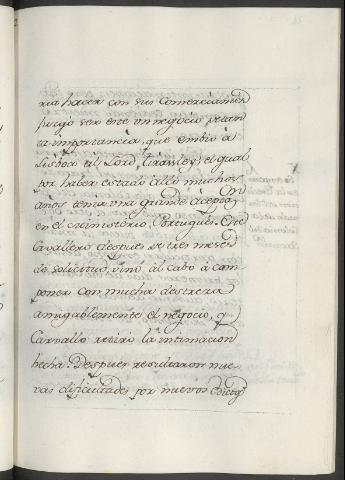 ria hacer con sus Comerciantes
juzgo ser este un negocio de tan
ta importancia, que embio à
Lisboa al Lord, Tirawley, el qual
por haber estado alli muchos
años tenia una grande aceptaz.on
en el Ministerio, Portugues. Este
Cavallero despues de tres meses
de solicitud, vino al cabo à com
poner con mucha destreza
amigablemente el negocio, y
Carvallo retirò la intimacion
hecha. Despues resultaron nue
vas dificultades por nuevos